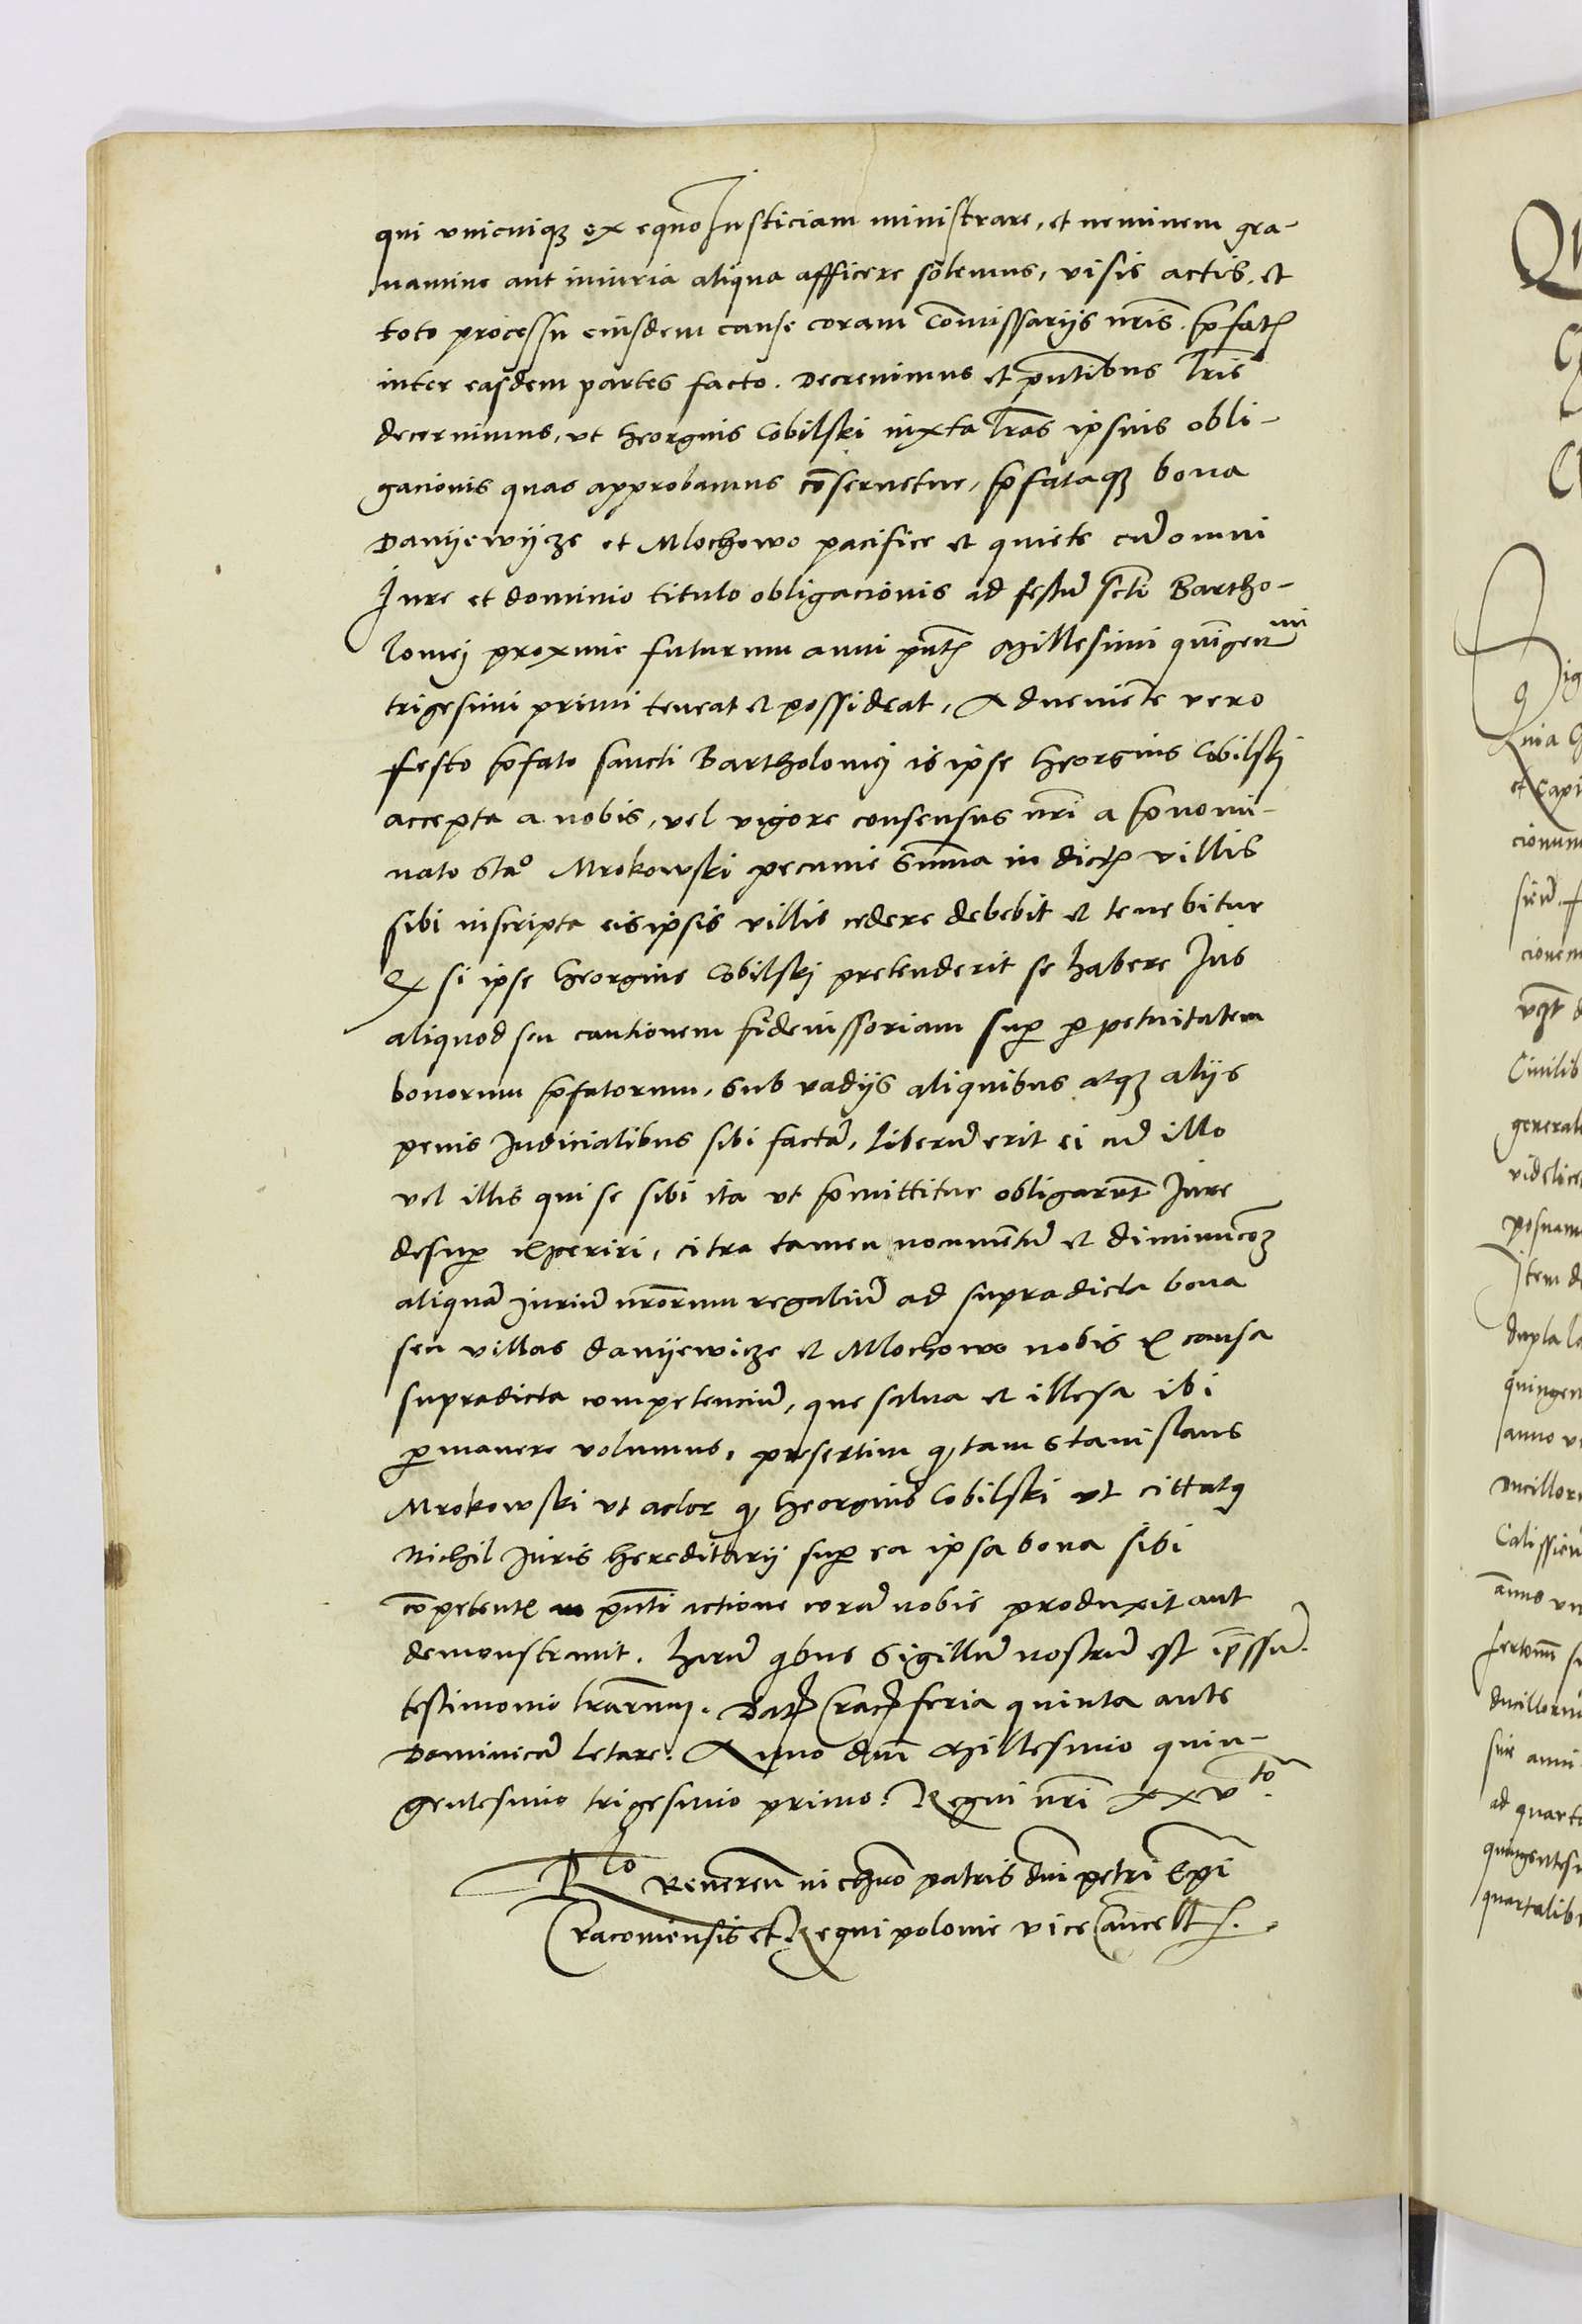 qui unicuiqꝫ ex equo Justiciam ministrare, et neminem gra-
uamine aut iniuria aliqua afficere solemus, visis actis, et
toto processu eiusdem cause coram Com̄issarijs nr̄is p̄fatꝭ
inter easdem partes facto. Decreuimus et pn̄tibus lr̄is
decernimus, ut Georgius Cobilski iuxta lr̄as ipsius obli-
gacionis quas approbamus cōseruetur, p̄fataqꝫ bona
Danyewycze et Mlochowo pacifice et quiete cū omni
Jure et dominio titulo obligacionis ad festū scti Bartho-
lomei proxime futurum anni pn̄tꝭ Millesimi quīgenᵐⁱ
trigesimi primi teneat et possideat, Adueniēte vero
festo p̄fato sancti Bartholomei is ipse Georgius Cobilskj
accepta a nobis, vel vigore consensus nr̄i a p̄nomi-
nato Stāo Mrokowski pecunie Sum̄a in dictꝭ villis
sibi inscripta eisipsis villis cedere debebit et tenebitur
Et si ipse Georgius Cobilskj pretenderit se habere Jus
aliquod seu cautionem fideiussoriam suꝑ ꝑpetuitatem
bonorum p̄fatorum, sub vadijs aliquibus atqꝫ alijs
penis Judicialibus sibi factā, liberū erit ei cū illo
vel illis qui se sibi ita ut p̄mittitur obligarūt Jure
desuꝑ experiri, citra tamen nocumētū et diminucōeꝫ
aliquā Juriū nr̄orum regaliū ad supradicta bona
seu villas Danyewicze et Mlochowo nobis ex causa
supradicta competenciū, que salua et illesa ibi
ꝑmanere volumus, presertim ꝙ tam Stanislaus
Mrokowski ut actor ꝙ Georgius Cobilski ut cittatꝰ
Nichil Juris hereditarij suꝑ ea ipsa bona sibi
cōpetentꝭ in pn̄ti actione corā nobis produxit aut
demonstrauit. harū qbus Sigillū nostrū est īpressū.
testimonio lr̄arum. Datꝭ Cracꝭ feria quinta ante
Dominicā Letare. Anno dn̄i Millesimo quin-
gentesimo trigesimo primo. Regni nr̄i xxvᵗᵒ.
Rˡᵒ Reuereñ in chr̄o patris dn̄i petri Ep̄i
Cracouiensis et Regni polonie vice Cancellꝭ.